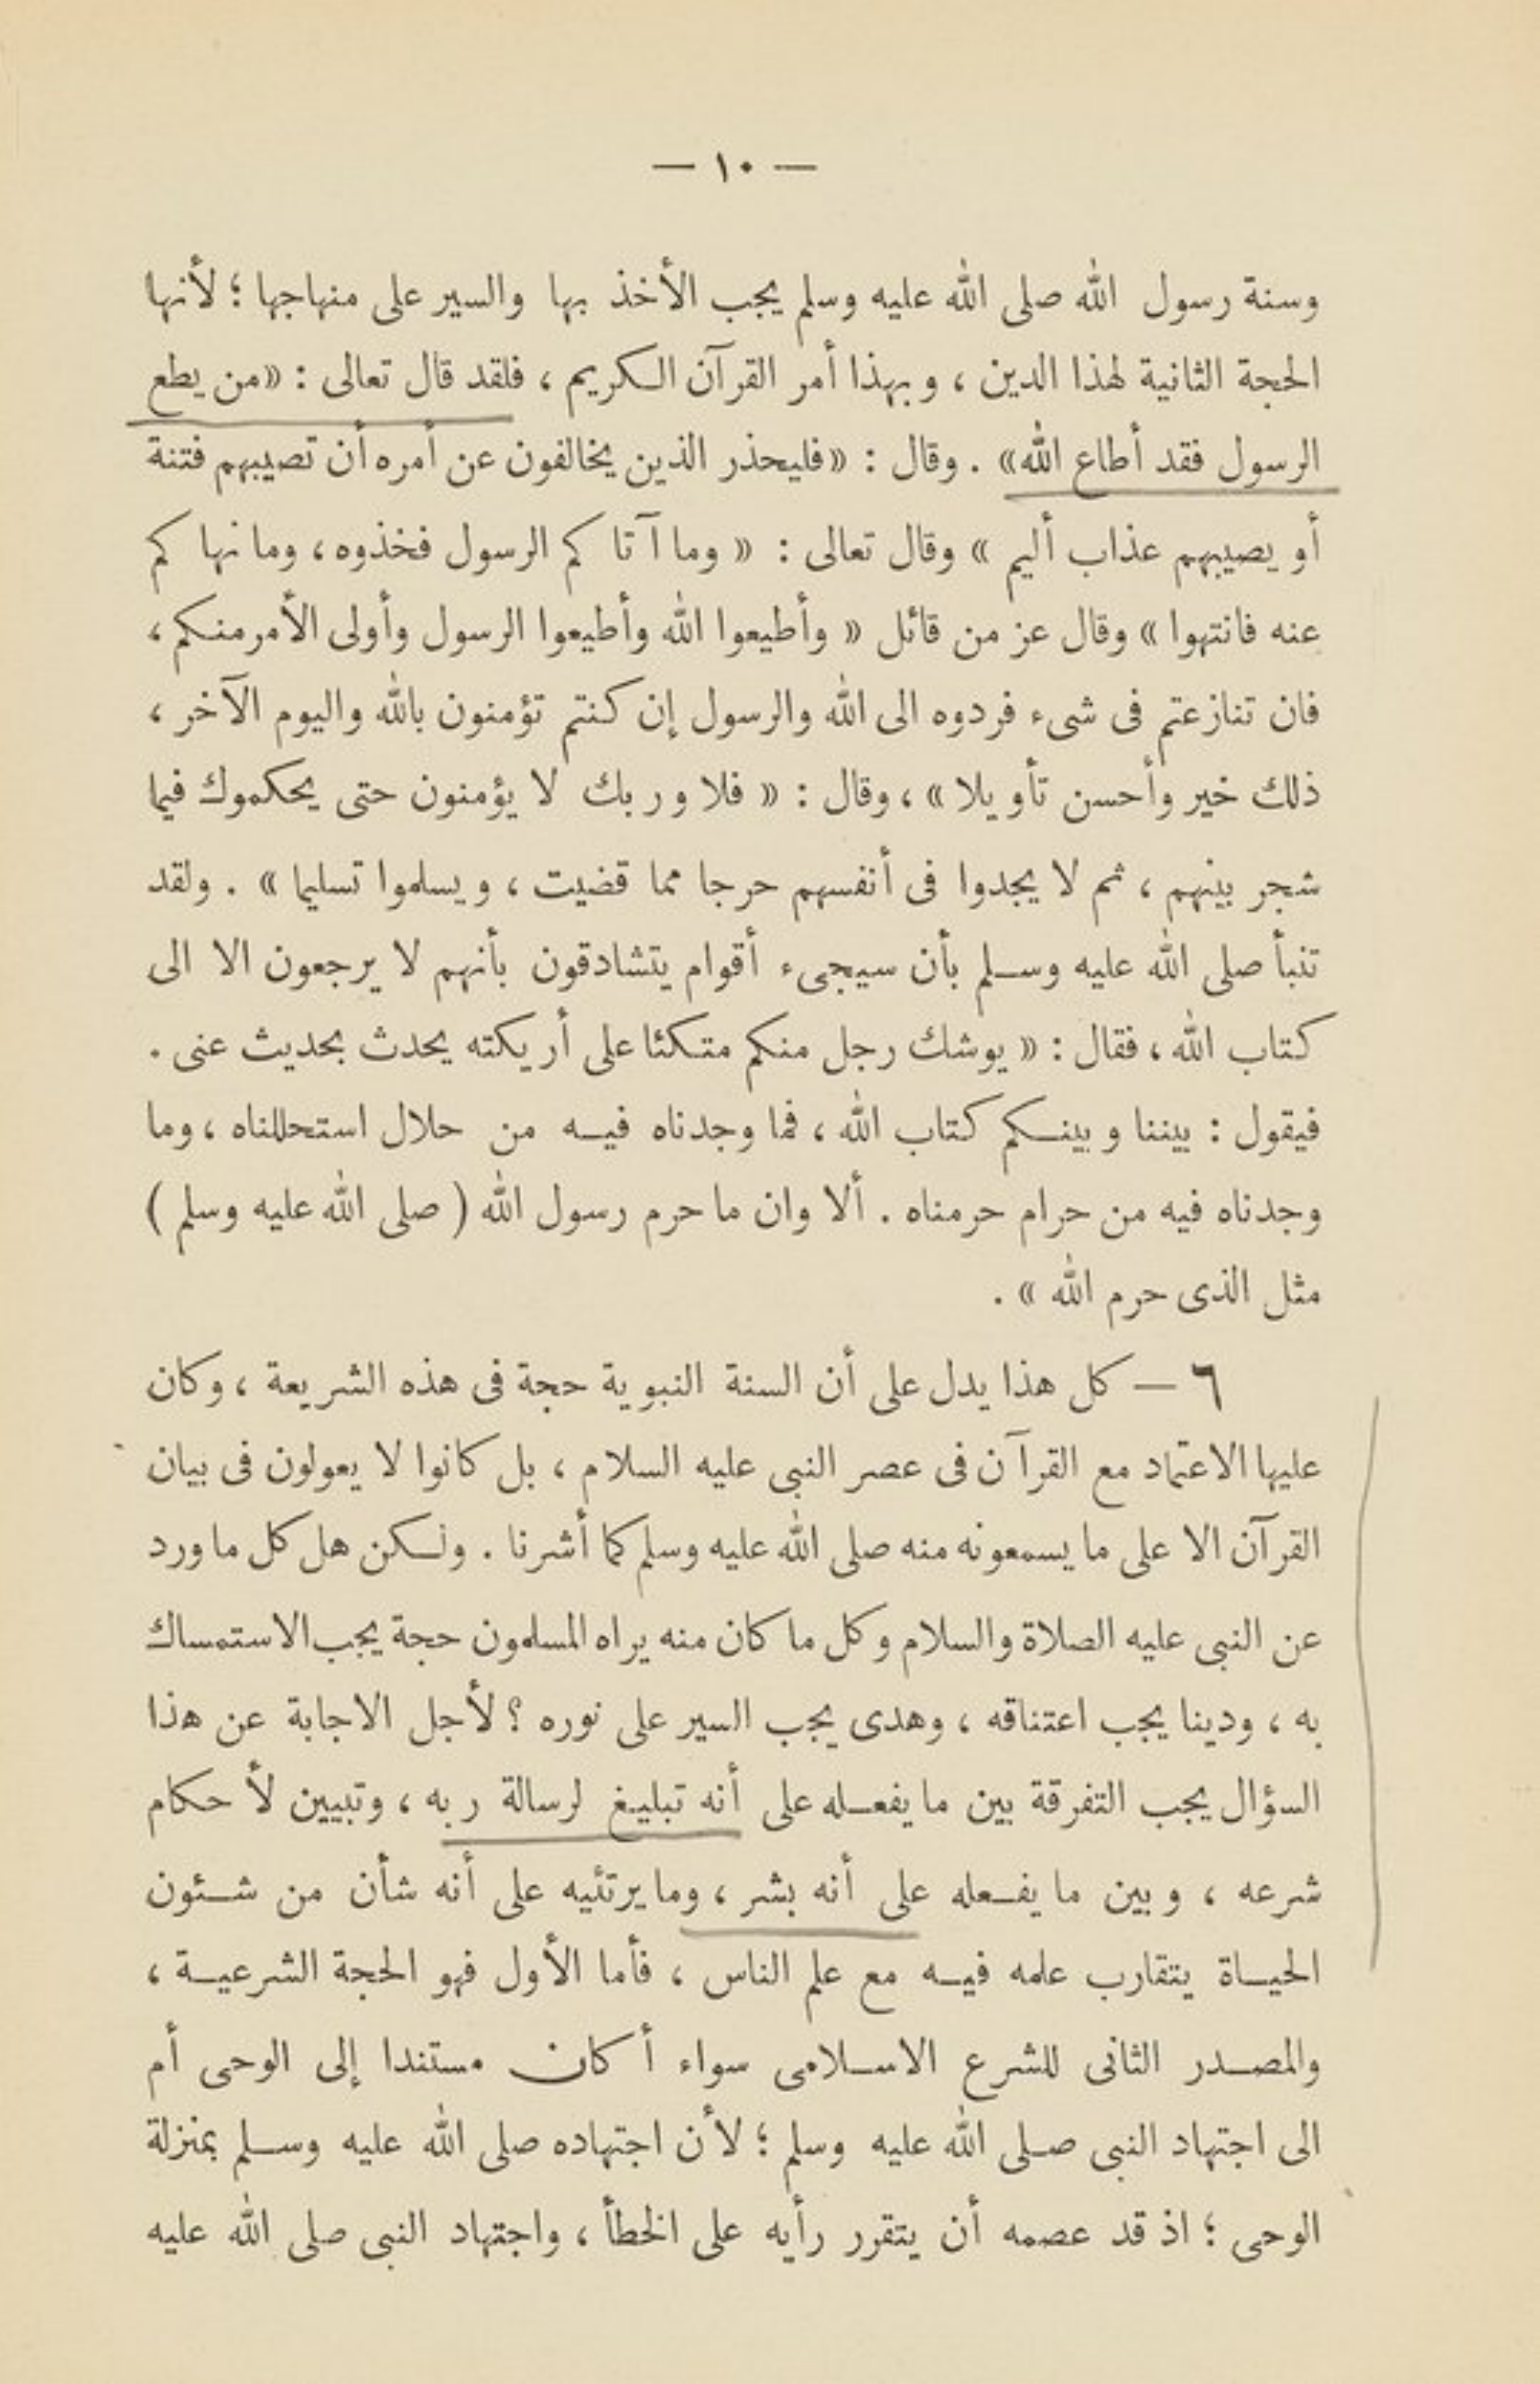 — ١٠ —
وسنة رسول الله صلى الله عليه وسلم يجب الأخذ بها والسير على منهاجها ؛ لأنها
الحجة الثانية لهذا الدين ، وبهذا أمر القرآن الكريم ، فلقد قال تعالى : «من يطع
الرسول فقد أطاع الله» . وقال : «فليحذر الذين يخالفون عن أمره أن تصيبهم فتنة
أو يصيبهم عذاب أليم » وقال تعالى : « وما آتاكم الرسول فخذوه ، وما نهاكم
عنه فانتهوا » وقال عز من قائل « وأطيعوا الله وأطيعوا الرسول وأولى الأمر منكم ،
فان تنازعتم فى شىء فردوه الى الله والرسول إن كنتم تؤمنون بالله واليوم الآخر ،
ذلك خير وأحسن تأويلا » ، وقال : « فلا وربك لا يؤمنون حتى يحكموك فيما
شجر بينهم ، ثم لا يجدوا فى أنفسهم حرجا مما قضيت ، ويسلموا تسليما » . ولقد
تنبأ صلى الله عليه وسلم بأن سيجىء أقوام يتشادقون بأنهم لا يرجعون الا الى
كتاب الله ، فقال : « يوشك رجل منكم متكئا على أريكته يحدث بحديث عنى .
فيقول : بيننا وبينكم كتاب الله ، فما وجدناه فيه من حلال استحللناه ، وما
وجدناه فيه من حرام حرمناه . ألا وان ما حرم رسول الله ( صلى الله عليه وسلم )
مثل الذى حرم الله » .
٦ — كل هذا يدل على أن السنة النبوية حجة فى هذه الشريعة ، وكان
عليها الاعتماد مع القرآن فى عصر النبى عليه السلام ، بل كانوا لا يعولون فى بيان
القرآن الا على ما يسمعونه منه صلى الله عليه وسلم كما أشرنا . ولكن هل كل ما ورد
عن النبى عليه الصلاة والسلام وكل ما كان منه يراه المسلمون حجة يجب الاستمساك
به ، ودينا يجب اعتناقه ، وهدى يجب السير على نوره ؟ لأجل الاجابة عن هذا
السؤال يجب التفرقة بين ما يفعله على أنه تبليغ لرسالة ربه ، وتبيين لأحكام
شرعه ، وبين ما يفعله على أنه بشر ، وما يرتئيه على أنه شأن من شئون
الحياة يتقارب علمه فيه مع علم الناس ، فأما الأول فهو الحجة الشرعية ،
والمصدر الثانى للشرع الاسلامى سواء أكان مستندا إلى الوحى أم
الى اجتهاد النبى صلى الله عليه وسلم ؛ لأن اجتهاده صلى الله عليه وسلم بمنزلة
الوحى ؛ اذ قد عصمه أن يتقرر رأيه على الخطأ ، واجتهاد النبى صلى الله عليه